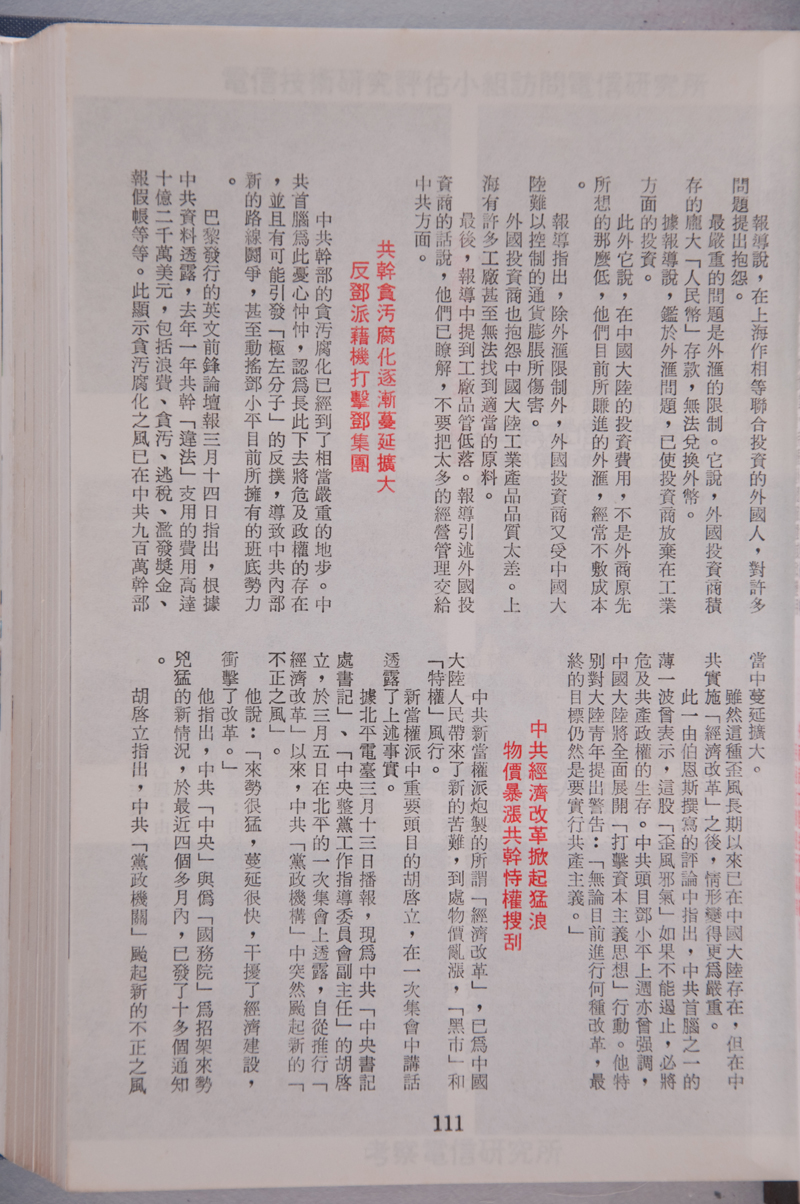 報導說，在上海作相等聯合投資的外國人，對許多
問題提出抱怨。
最嚴重的問題是外滙的限制。它說，外國投資商積
存的龐大「人民幣」存款，無法兌換外幣。
據報導說，鑑於外滙問題，已使投資商放棄在工業
方面的投資。
此外它說，在中國大陸的投資費用，不是外商原先
所想的那麼低，他們目前所賺進的外滙，經常不敷成本
。
報導指出，除外滙限制外，外國投資商又受中國大
陸難以控制的通貨膨脹所傷害。
外國投資商也抱怨中國大陸工業產品品質太差。上
海有許多工廠甚至無法找到適當的原料。
最後，報導中提到工廠品管低落。報導引述外國投
資商的話說，他們已瞭解，不要把太多的經營管理交給
中共方面。
共幹貪汚腐化逐漸蔓延擴大
反鄧派藉機打擊鄧集團
中共幹部的貪汚腐化已經到了相當嚴重的地步。中
共首腦爲此憂心忡忡，認爲長此下去將危及政權的存在
，並且有可能引發「極左分子」的反撲，導致中共內部
新的路線鬪爭，甚至動搖鄧小平目前所擁有的班底勢力
。
巴黎發行的英文前鋒論壇報三月十四日指出，根據
中共資料透露，去年一年共幹「違法」支用的費用高達
十億二千萬美元，包括浪費、貪汚、逃稅、濫發獎金、
報假帳等等。此顯示貪汚腐化之風已在中共九百萬幹部
當中蔓延擴大。
雖然這種歪風長期以來已在中國大陸存在，但在中
共實施「經濟改革」之後，情形變得更爲嚴重。
此一由伯恩斯撰寫的評論中指出，中共首腦之一的
薄一波曾表示，這股「歪風邪氣」如果不能遏止，必將
危及共產政權的生存。中共頭目鄧小平上週亦曾强調，
中國大陸將全面展開「打擊資本主義思想」行動。他特
別對大陸靑年提出警告：「無論目前進行何種改革，最
終的目標仍然是要實行共產主義。」
中共經濟改革掀起猛浪
物價暴漲共幹恃權搜刮
中共新當權派炮製的所謂「經濟改革」，已爲中國
大陸人民帶來了新的苦難，到處物價亂漲，「黑市」和
「特權」風行。
新當權派中重要頭目的胡啓立，在一次集會中講話
透露了上述事實。
據北平電臺三月十三日播報，現爲中共「中央書記
處書記」、「中央整黨工作指導委員會副主任」的胡啓
立，於三月五日在北平的一次集會上透露，自從推行「
經濟改革」以來，中共「黨政機構」中突然颳起新的「
不正之風」。
他說：「來勢很猛，蔓延很快，干擾了經濟建設，
衝擊了改革。」
他指出，中共「中央」與僞「國務院」爲招架來勢
兇猛的新情況，於最近四個多月內，已發了十多個通知
。
胡啓立指出，中共「黨政機關」颳起新的不正之風
111